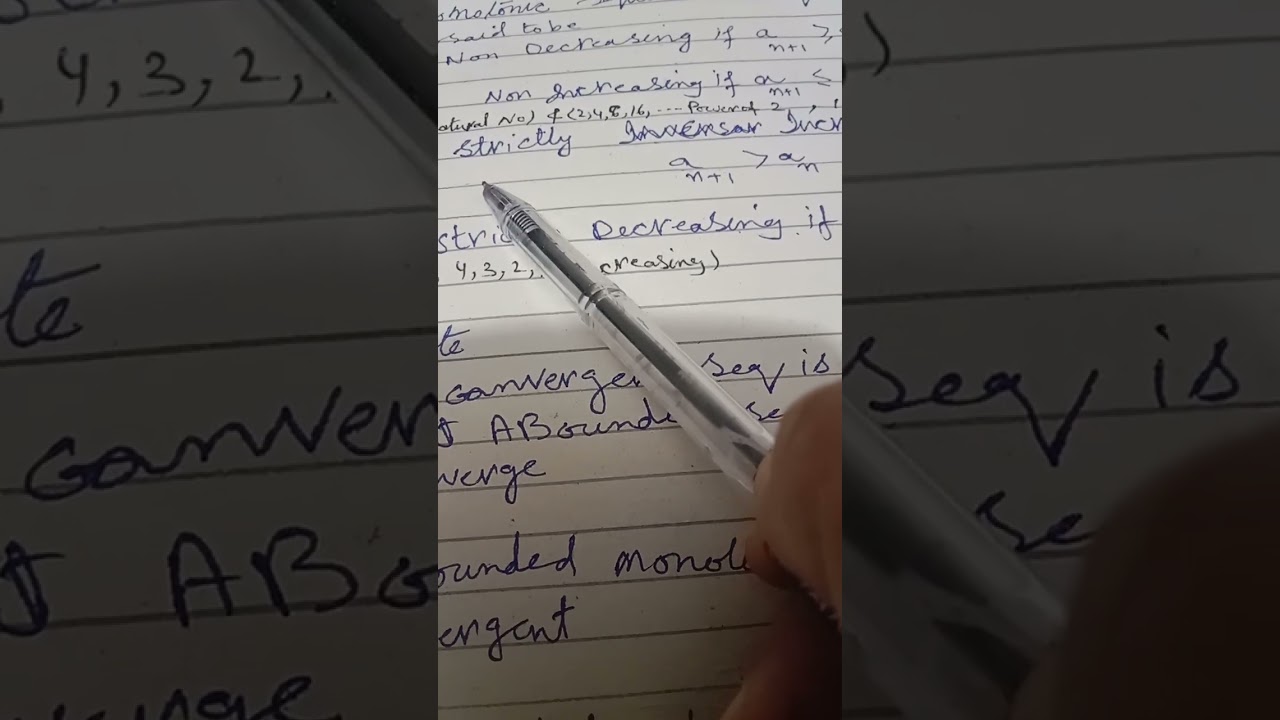 said to be
Non Decreasing if a n+1 >,
Non Increasing if a n+1 ≤
No) & (2,4,8,16, ---- Power of 2
strictly Incr
a n+1 > a n
Decreasing if
4, 3, 2, creasing)
te
converge seq is
A Bounde se
verge
ounded mono
ergent